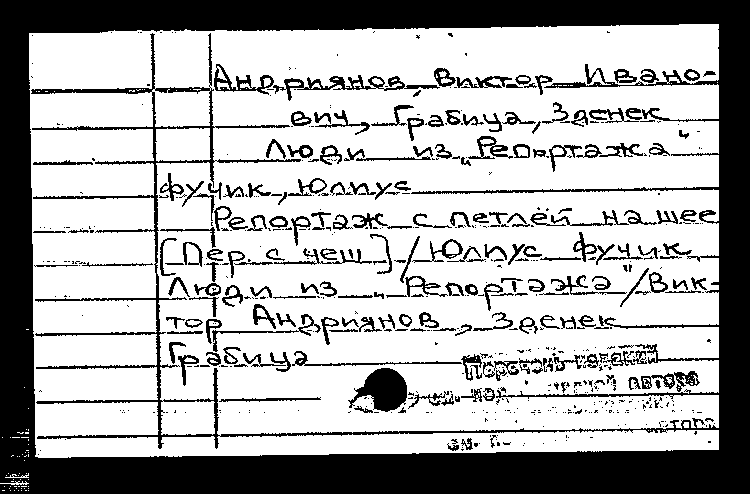 Андриянов, Виктор Ивано-
вич, Грабица, Зденек
Люди из „Репортажа"
Фучик, Юлиус
Репортаж с петлёй на шее
[Пер. с чеш]/Юлиус Фучик.
Люди из „Репортажа"/Вик-
тор Андриянов, Зденек
Грабица
Перечень изданий
см. под автора
см.